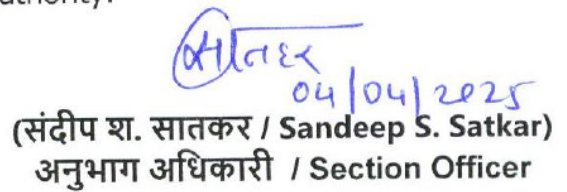 authority.
सातकर
04/04/2025
(संदीप श. सातकर / Sandeep S. Satkar)
अनुभाग अधिकारी / Section Officer